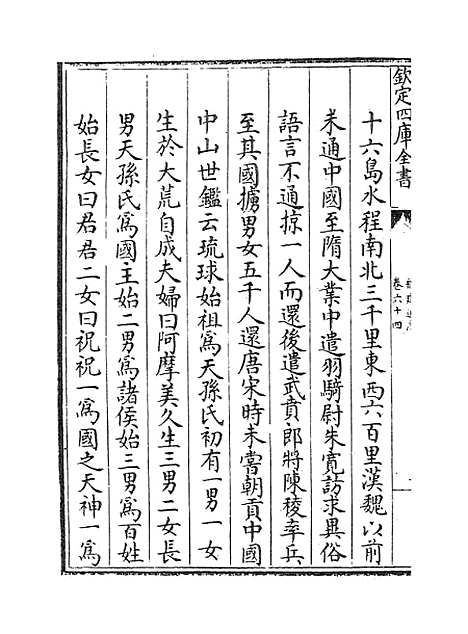 欽定四庫全書
卷六十四
十六島水程南北三千里東西六百里漢魏以前
未通中國至隋大業中遣羽騎尉朱寛訪求異俗
語言不通掠一人而還後遣武賁郎將陳稜率兵
至其國擄男女五千人還唐宋時未嘗朝貢中國
中山世鑑云琉球始祖為天孫氏初有一男一女
生於大荒自成夫婦曰阿摩美久生三男二女長
男天孫氏為國主始二男為諸侯始三男為百姓
始長女曰君君二女曰祝祝一為國之天神一為